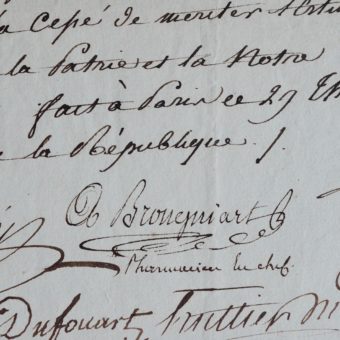 a Cessé de mériter
la Patrie et la Notre
fait à Paris ce 29
la République /.
Brongniart
Pharmacien en chef
Dufouart